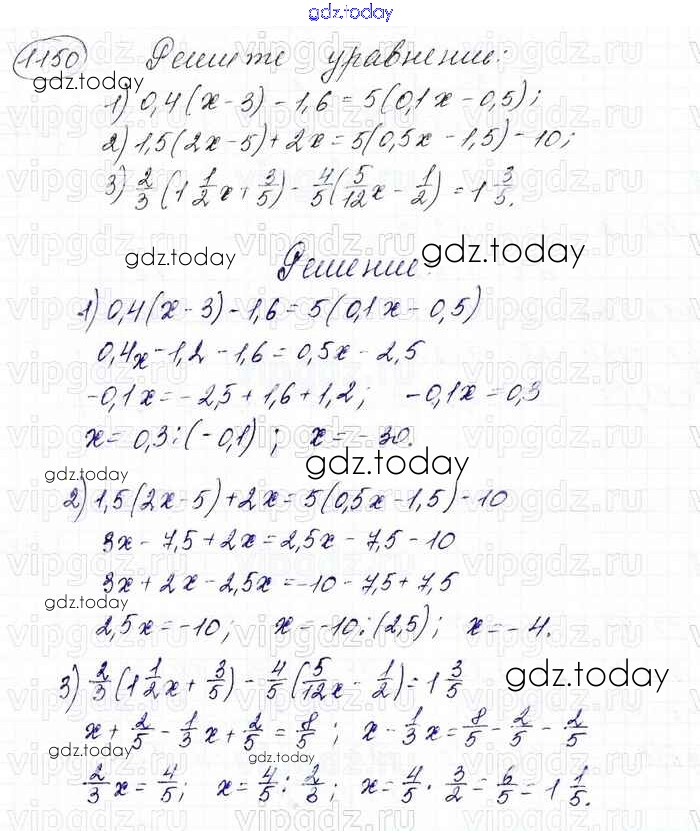 gdz.today
1150 Решите уравнение:
gdz.today
1) 0,4(x-3)-1,6=5(0,1x-0,5);
2) 1,5(2x-5)+2x=5(0,5x-1,5)-10;
3) 2/3(1 1/2x+3/5)-4/5(5/12x-1/2)=1 3/5.
gdz.today Решение: gdz.today
1) 0,4(x-3)-1,6=5(0,1x-0,5)
0,4x-1,2-1,6=0,5x-2,5
-0,1x=-2,5+1,6+1,2; -0,1x=0,3
x=0,3:(-0,1); x=-30.
gdz.today gdz.today
2) 1,5(2x-5)+2x=5(0,5x-1,5)-10
3x-7,5+2x=2,5x-7,5-10
3x+2x-2,5x=-10-7,5+7,5
gdz.today
2,5x=-10; x=-10:(2,5); x=-4.
3) 2/3(1 1/2x+3/5)-4/5(5/12x-1/2)=1 3/5
gdz.today
x+2/5-1/3x+2/5=8/5; x-1/3x=8/5-2/5-2/5
gdz.today
2/3x=4/5; x=4/5:2/3; x=4/5·3/2=6/5=1 1/5.